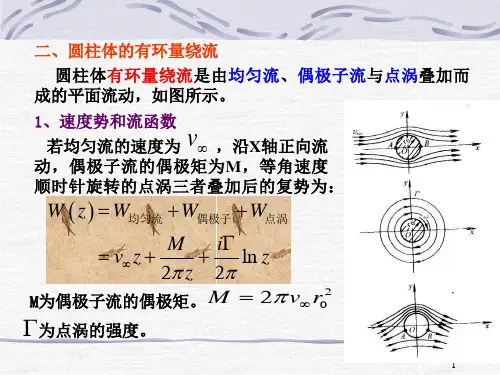 二、圆柱体的有环量绕流
圆柱体有环量绕流是由均匀流、偶极子流与点涡叠加而
成的平面流动，如图所示。
1、速度势和流函数
若均匀流的速度为 v∞ ，沿X轴正向流
动，偶极子流的偶极矩为M，等角速度
顺时针旋转的点涡三者叠加后的复势为：
W(z) = W均匀流 + W偶极子 + W点涡
= v∞z + M/2πz + iΓ/2π ln z
M为偶极子流的偶极矩。 M = 2πv∞r₀²
Γ为点涡的强度。
y
v∞
A
O
B
x
y
Γ
O
x
y
O
A
B
x
1